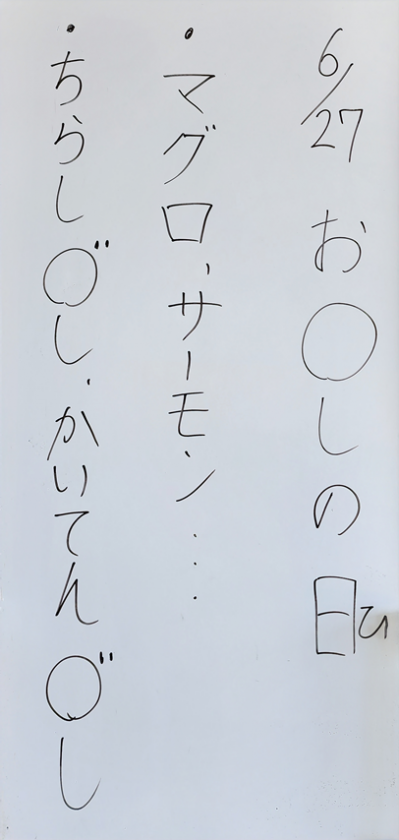 6/27 お〇しの日ひ
・マグロ、サーモン...
・ちらし〇゛し、かいてん〇゛し